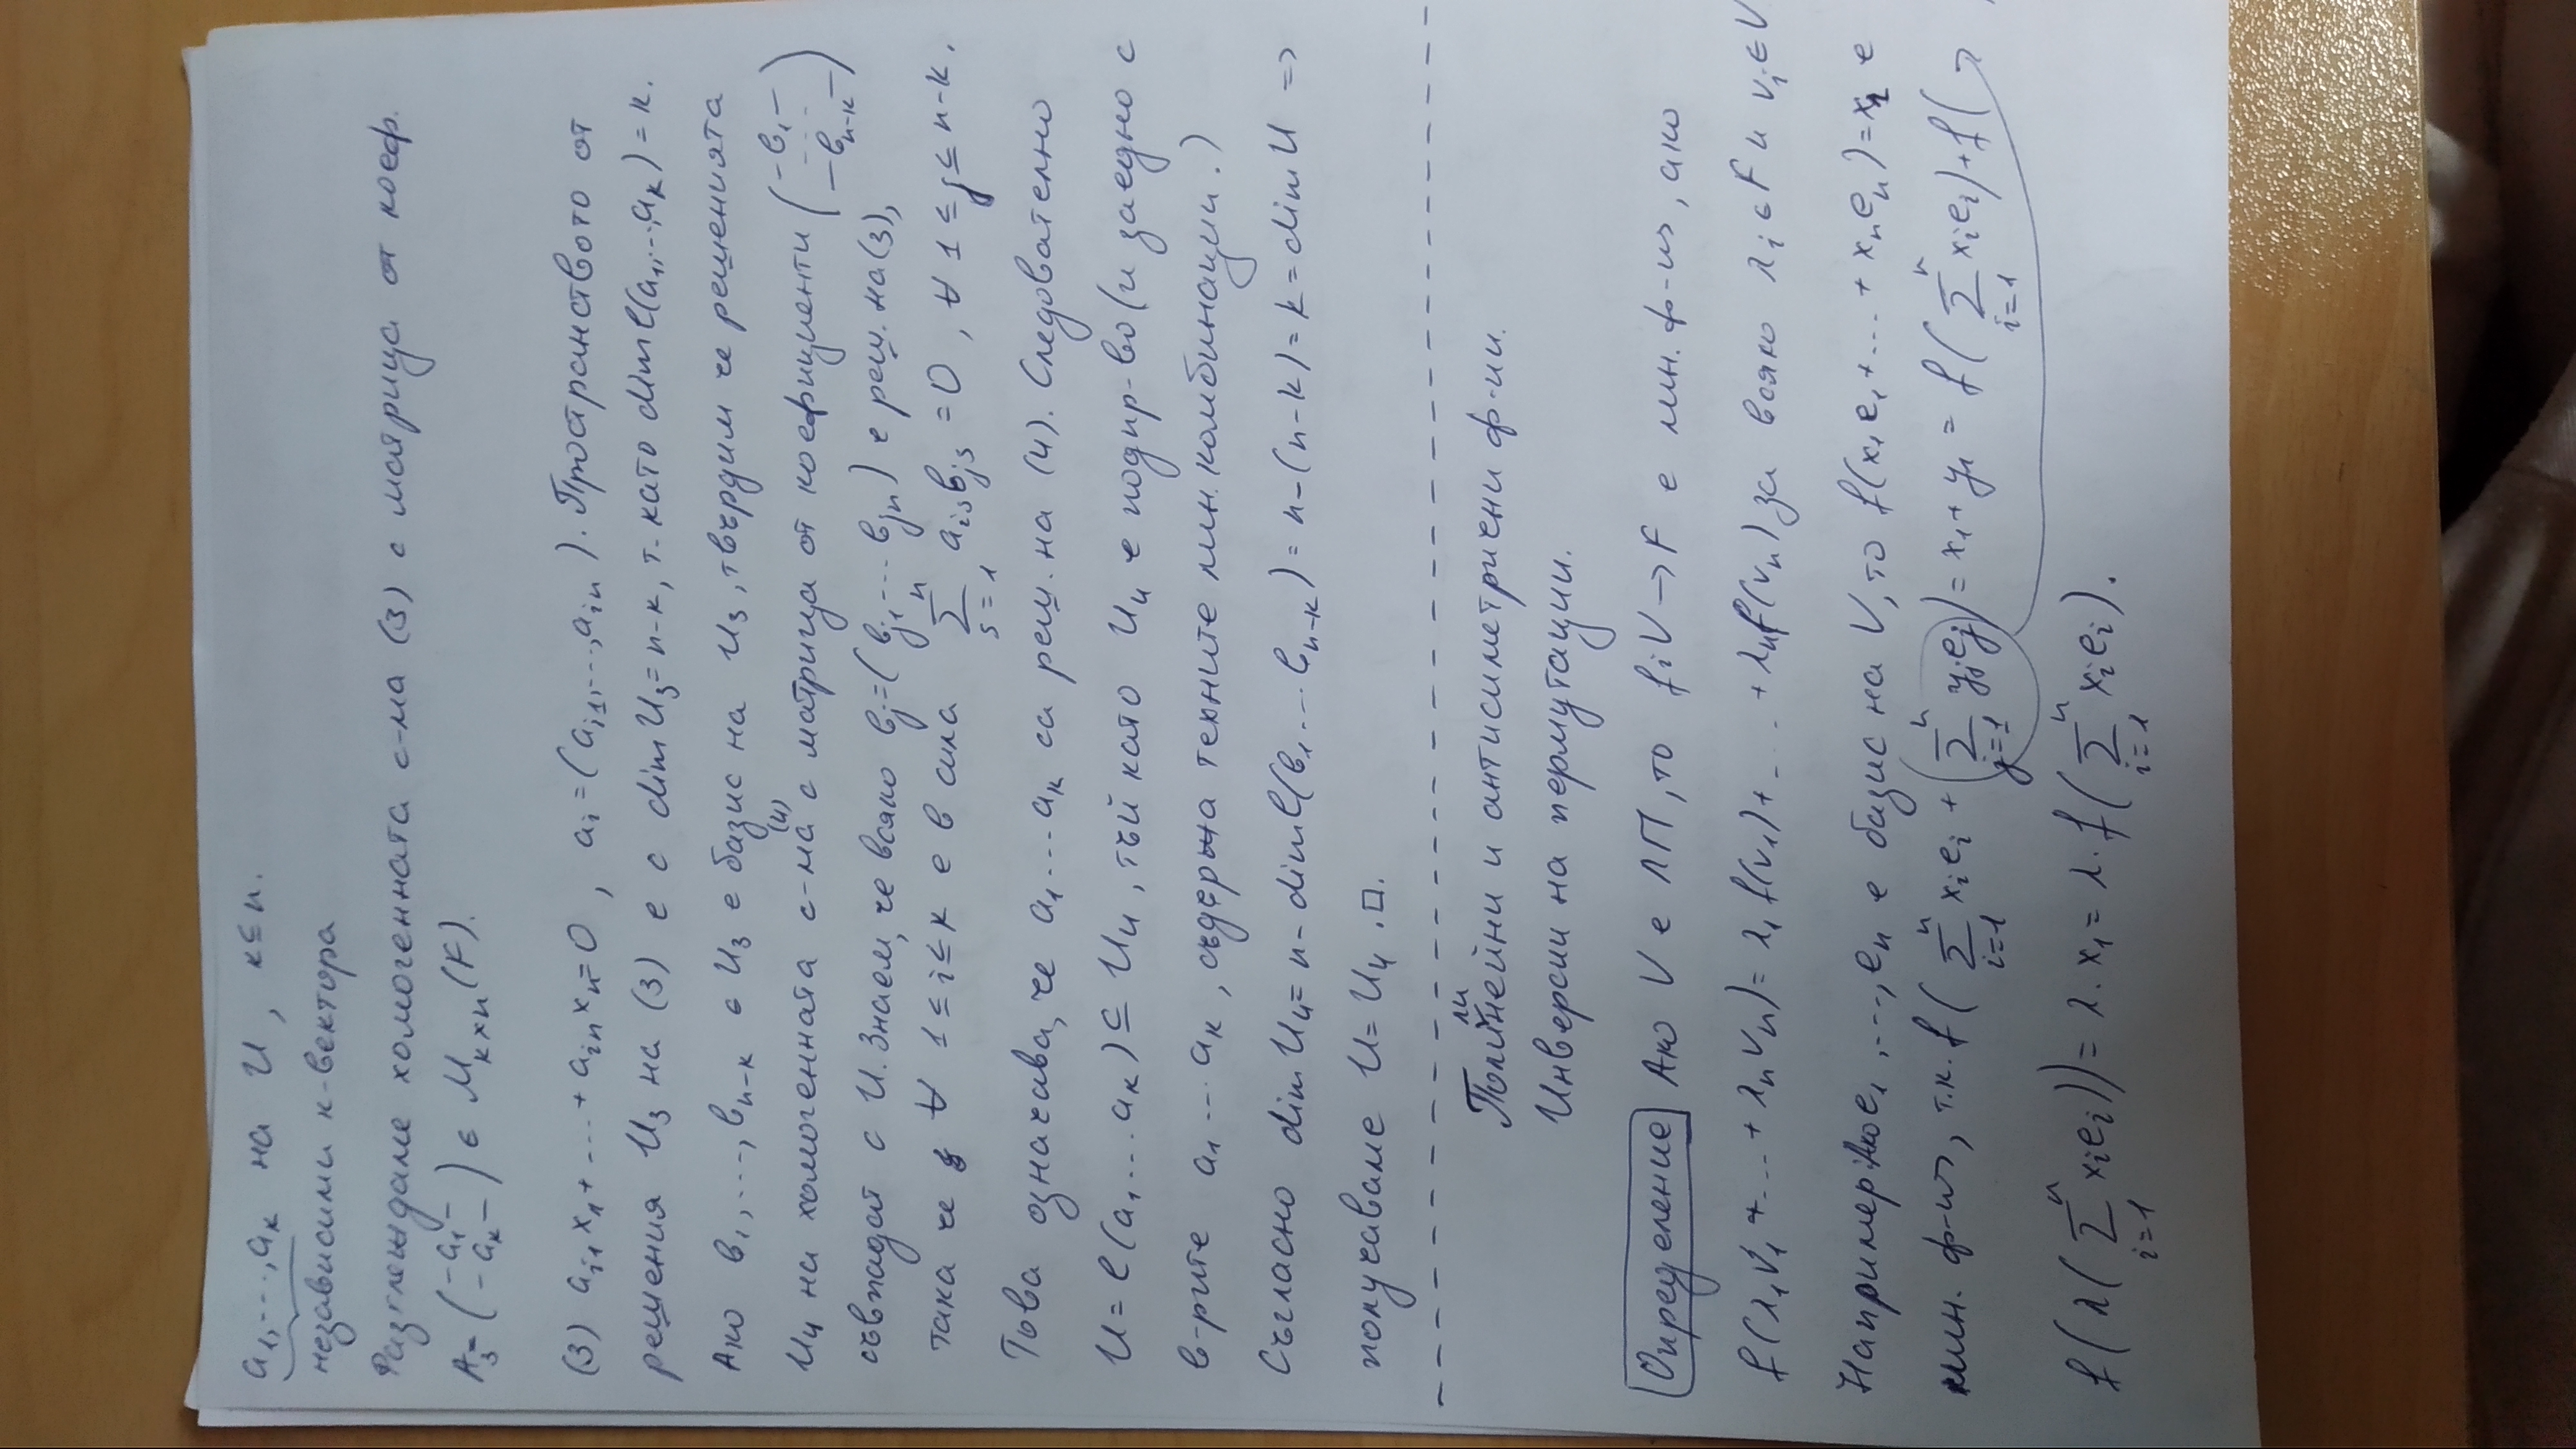 a₁, ..., aₖ на U, k ≤ n.
независими к-вектора
Разглеждаме хомогенната с-ма (3) с матрица от коеф.
A₃ = (–a₁– –aₖ–) ∈ Mₖₓₙ(F).
(3) aᵢ₁x₁ + ... + aᵢₙxₙ = 0, aᵢ = (aᵢ₁, ..., aᵢₙ). Пространството от
решения U₃ на (3) е с dim U₃ = n-k, т. като dim ℓ(a₁, ..., aₖ) = k.
Ако b₁, ..., bₙ₋ₖ ∈ U₃ е базис на U₃, твърдим че решенията
U₄ на хомогенната с-ма (4) с матрица от коефициенти (–b₁– ... –bₙ₋ₖ–)
съвпадат с U. Знаем, че всяко bⱼ = (bⱼ₁ ... bⱼₙ) е реш. на (3),
така че ∀ 1 ≤ i ≤ k е в сила ∑ₛ₌₁ⁿ aᵢₛbⱼₛ = 0, ∀ 1 ≤ j ≤ n-k.
Това означава, че a₁ ... aₖ са реш. на (4). Следователно
U = ℓ(a₁ ... aₖ) ⊆ U₄, тъй като U₄ е подпр-во (и заедно с
в-рите a₁ ... aₖ, съдържа техните лин. комбинации.)
Съгласно dim U₄ = n - dim ℓ(b₁ ... bₙ₋ₖ) = n-(n-k) = k = dim U =>
получаваме U = U₄. □.
Полилинейни и антисиметрични ф-ии.
Инверсии на пермутации.
Определение Ако V е ЛП, то f: V → F е лин. ф-ия, ако
f(λ₁v₁ + ... + λₙvₙ) = λ₁f(v₁) + ... + λₙf(vₙ) за всяко λᵢ ∈ F и vᵢ ∈ V
Например: Ако e₁, ..., eₙ е базис на V, то f(x₁e₁ + ... + xₙeₙ) = x₁ е
лин. ф-ия, т.к. f(∑ᵢ₌₁ⁿ xᵢeᵢ + (∑ⱼ₌₁ⁿ yⱼeⱼ) = x₁ + y₁ = f(∑ᵢ₌₁ⁿ xᵢeᵢ) + f(
f(λ(∑ᵢ₌₁ⁿ xᵢeᵢ)) = λ.x₁ = λ.f(∑ᵢ₌₁ⁿ xᵢeᵢ).